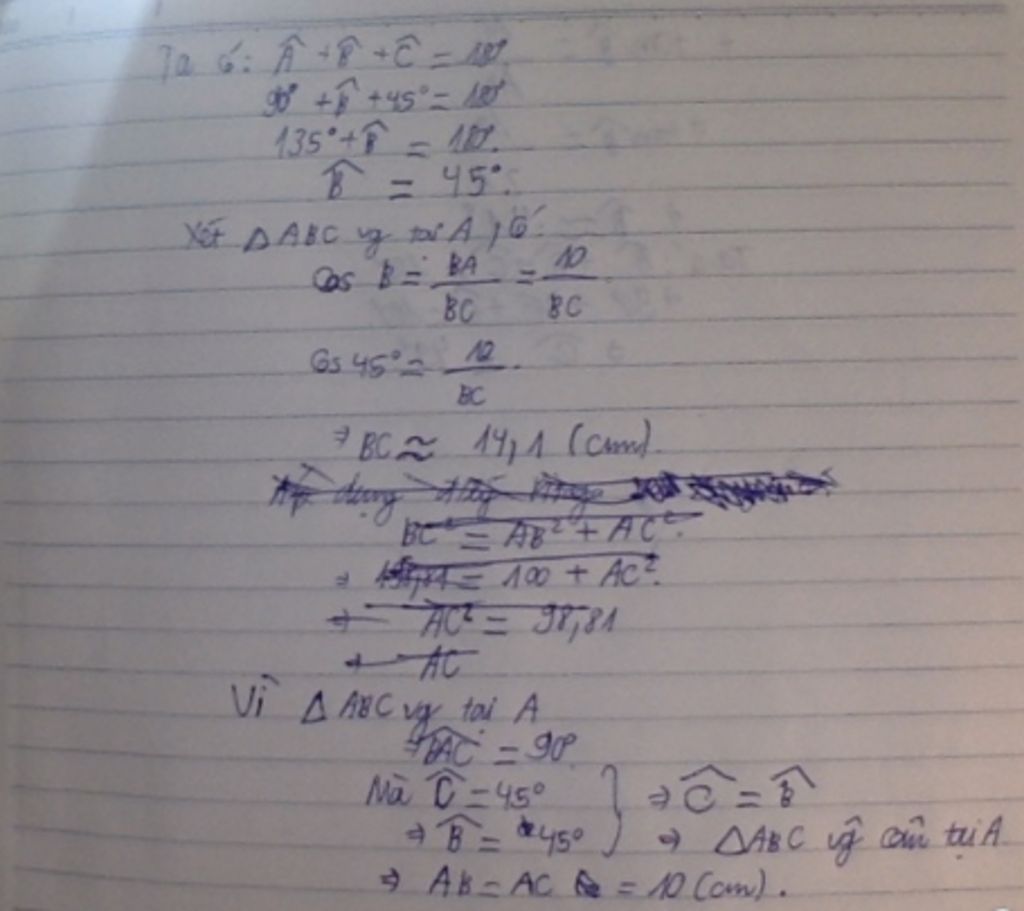 Ta có: Â + B̂ + Ĉ = 180°
90° + B̂ + 45° = 180°
135° + B̂ = 180°.
B̂ = 45°.
Xét △ABC vg tại A, có:
Cos B = BA/BC = 10/BC
Cos 45° = 10/BC.
⇒ BC ≈ 14,1 (cm).
Áp dụng
BC² = AB² + AC².
⇒ = 100 + AC².
⇒ AC² = 98,81
⇒ AC
Vì △ABC vg tại A
⇒ B̂AC = 90°.
Mà Ĉ = 45° } ⇒ Ĉ = B̂
⇒ B̂ = 45° ⇒ △ABC vg cân tại A
⇒ AB = AC = 10 (cm).